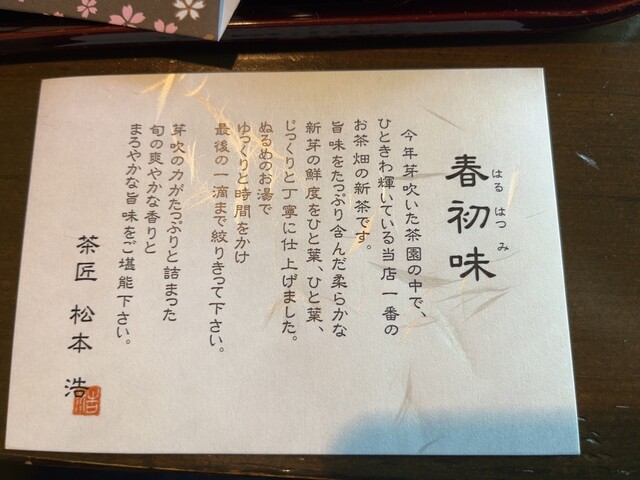 春初味
はる はつ み
今年芽吹いた茶園の中で、
ひときわ輝いている当店一番の
お茶畑の新茶です。
旨味をたっぷり含んだ柔らかな
新芽の鮮度をひと葉、ひと葉、
じっくりと丁寧に仕上げました。
ぬるめのお湯で
ゆっくりと時間をかけ
最後の一滴まで絞りきって下さい。
芽吹の力がたっぷりと詰まった
旬の爽やかな香りと
まろやかな旨味をご堪能下さい。
茶匠 松本 浩